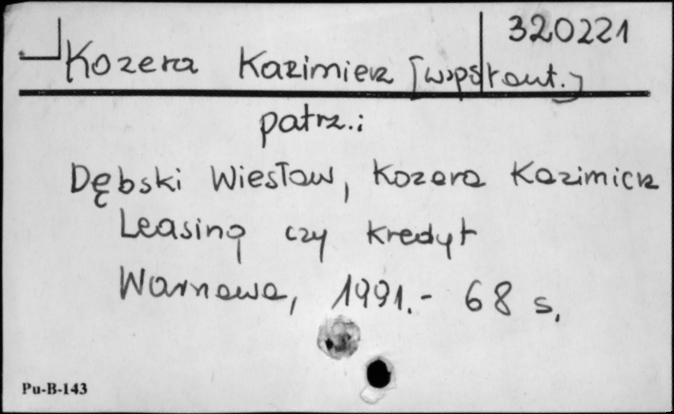 320221
Kozera Kazimierz [współaut.]
patrz.:
Dębski Wiesław, Kozera Kazimierz
Leasing czy kredyt
Warszawa, 1991.- 68 s.
Pu-B-143